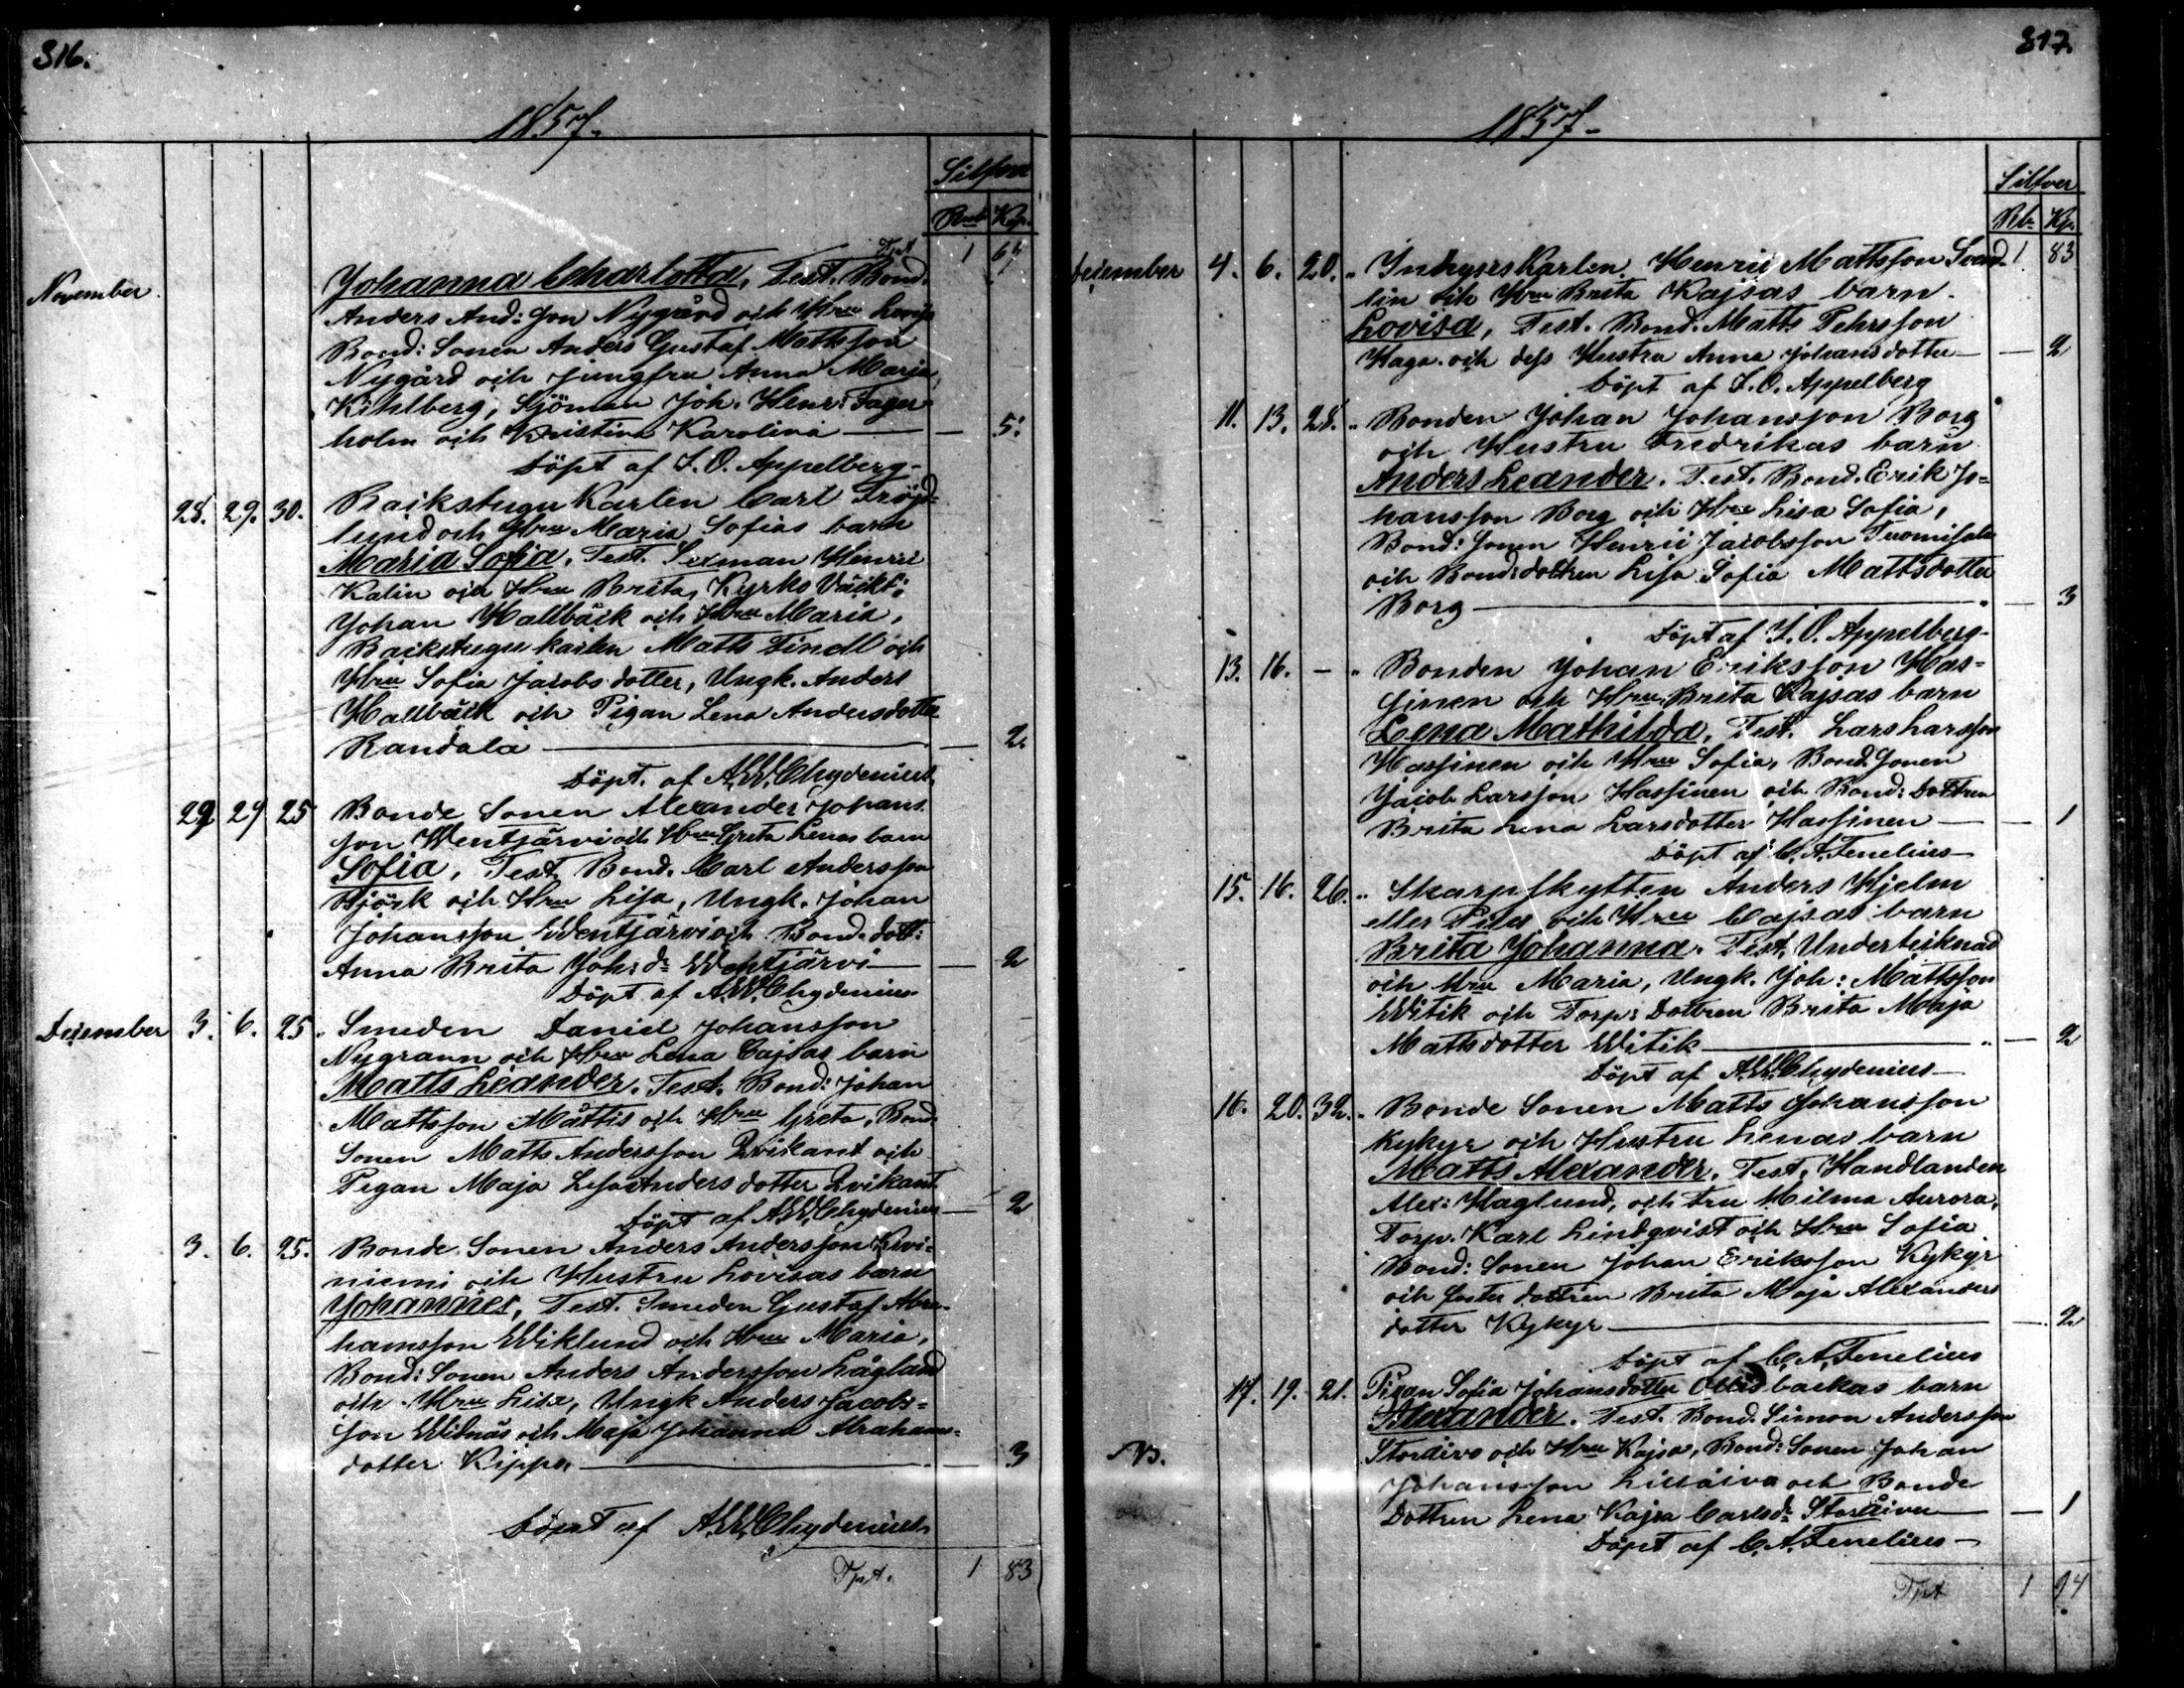 316.
1857.
Silfver
Rub Kop.
Tpt 1 67
November
Johanna Charlotta, Test. Bond.
Anders And:son Nygård och Hru Lovisa
Bond: Sonen Anders Gustaf Mattsson
Nygård och Jungfru Anna Maria
Kihlberg, Sjöman Joh. Henr: Fager-
holm och Kristina Karolina — — 5.
Döpt af I. O. Appelberg-
28. 29. 30. Backstugu Karlen Carl Fröjd-
lund och Hru Maria Sofias barn
Maria Sofia. Test. Sexman Henric
Kalin och Hru Brita, Kyrko Väckt:
Johan Hallbäck och Hru Maria,
Backstugu karlen Matts Lindl och
Hru Sofia Jacobs dotter, Ungk. Anders
Hallbäck och Pigan Lena Andersdotter
Randala — — 2
Döpt. af A.W. Chydenius.
29 29 25 Bonde Sonen Alexander Johans
son Wentjärvi och Hru Greta Lenas barn
Sofia, Test. Bond. Carl Andersson
Björk och Hru Lisa, Ungk. Johan
Johansson Wentjärvi och Bond. dott:
Anna Brita Joh:dr Wentjärvi — — 2
Döpt af A.W. Chydenius
December 3. 6. 25. Smeden Daniel Johansson
Nygrann och Hru Lena Cajsas barn
Matts Leander. Test. Bond: Johan
Mattsson Mattis och Hru Greta, Bond.
Sonen Matts Andersson Qvikant och
Pigan Maja Lisa Anders dotter Qvikant
Döpt af A.W. Chydenius — 2
3. 6. 25. Bonde Sonen Anders Andersson Kivi-
niemi och Hustru Lovisas barn
Johannes, Test. Smeden Gustaf Abra-
hamsson Wiklund och Hru Maria,
Bond: Sonen Anders Andersson Lågland
och Hru Lisa, Ungk Anders Jacobs-
son Widnäs och Maja Johanna Abrahams-
dotter Kippo. — — 3
Döpt af A.W. Chydenius
Tpt. 1 83
317.
1857-
Silfver
Rb Kp.
December 4. 6. 20. " Inhyses Karlen Henric Mattsson Sved- 1 83
lin och Hru Brita Kajsas barn.
Lovisa, Test. Bond. Matts Pehrsson
Haga och dess Hustru Anna Johansdotter — — 2
Döpt af I. O. Appelberg
11. 13. 28. " Bonden Johan Johansson Borg
och Hustru Fredrikas barn
Anders Leander. Test. Bond. Erik Jo-
hansson Borg och Hru Lisa Sofia,
Bond: Sonen Henric Jacobsson
och Bond: dottren Lisa Sofia Mattsdotter
Borg — — 3
Döpt af I. O. Appelberg-
13. 16. — " Bonden Johan Eriksson Has-
sinen och Hru Brita Kajsas barn
Lena Mathilda, Test. Lars Larsson
Hassinen och Hru Sofia, Bond. Sonen
Jacob Larsson Hassinen och Bond: Dottren
Brita Lena Larsdotter Hassinen — — 1
Döpt af C. A. Fenelius —
15. 16. 26. " Skarpskytten Anders Hjelm
eller och Hru Cajsas barn
Brita Johanna. Test. Undertecknad
och Hru Maria, Ungk. Joh: Mattsson
Witik och Torp: Dottren Brita Maja
Mattsdotter Witik — " — 2
Döpt af A.W. Chydenius —
16. 20. 32. " Bonde Sonen Matts Johansson
Kykyr och Hustru Lenas barn
Matts Alexander. Test. Handlanden
Alex: Haglund, och Fru Hilma Aurora,
Torp. Karl Lindqvist och Hru Sofia
Bond: Sonen Johan Eriksson Kykyr
och foster dottren Brita Maja Alexanders
dotter Kykyr — — 2
Döpt af C. A. Fenelius
17. 19. 21. Pigan Sofia Johansdotter Ollisbackas barn
Alexander. Test. Bond. Simon Andersson
Storåivo och Hru Kajsa, Bond: Sonen Johan
Johansson Lillåivo och Bonde
Dottren Lena Kajsa Carlsdr Storåivo — — 1
Döpt af C. A. Fenelius —
Tpt 1 94